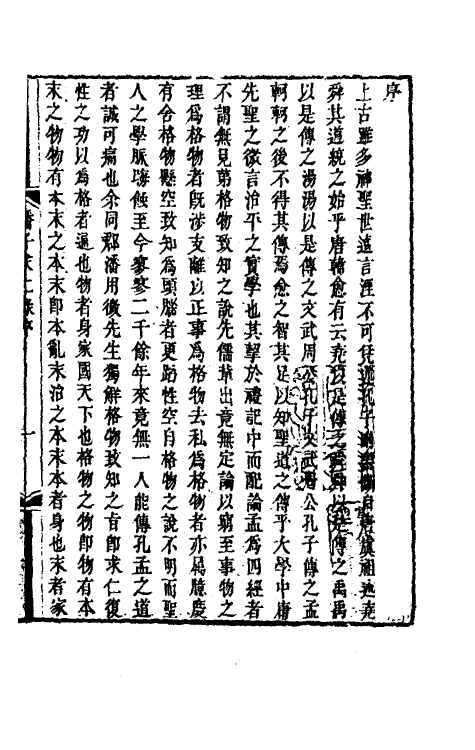 序
上古雖多神聖世遠言湮不可凭述孔子刪書斷自唐虞祖述堯
舜其道統之始乎唐韓愈有云堯以是傳之舜舜以是傳之禹禹
以是傳之湯湯以是傳之文武周公孔子文武周公孔子傳之孟
軻軻之後不得其傳焉愈之智其足以知聖道之傳乎大學中庸
先聖之微言治平之實學也其揫於禮記中而配論孟爲四經者
不謂無見第格物致知之說先儒輩出竟無定論以窮至事物之
理爲格物者旣涉支離以正事爲格物去私爲格物者亦屬臆度
有舍格物懸空致知爲頭腦者更蹈性空自格物之說不明而聖
人之學脈晦蝕至今寥寥二千餘年來竟無一人能傳孔孟之道
者誠可痛也余同郡潘用微先生獨解格物致知之旨卽求仁復
性之功以爲格者通也物者身家國天下也格物之物卽物有本
末之物物有本末之本末卽本亂末治之本末本者身也末者家
潘子求仁錄序
一